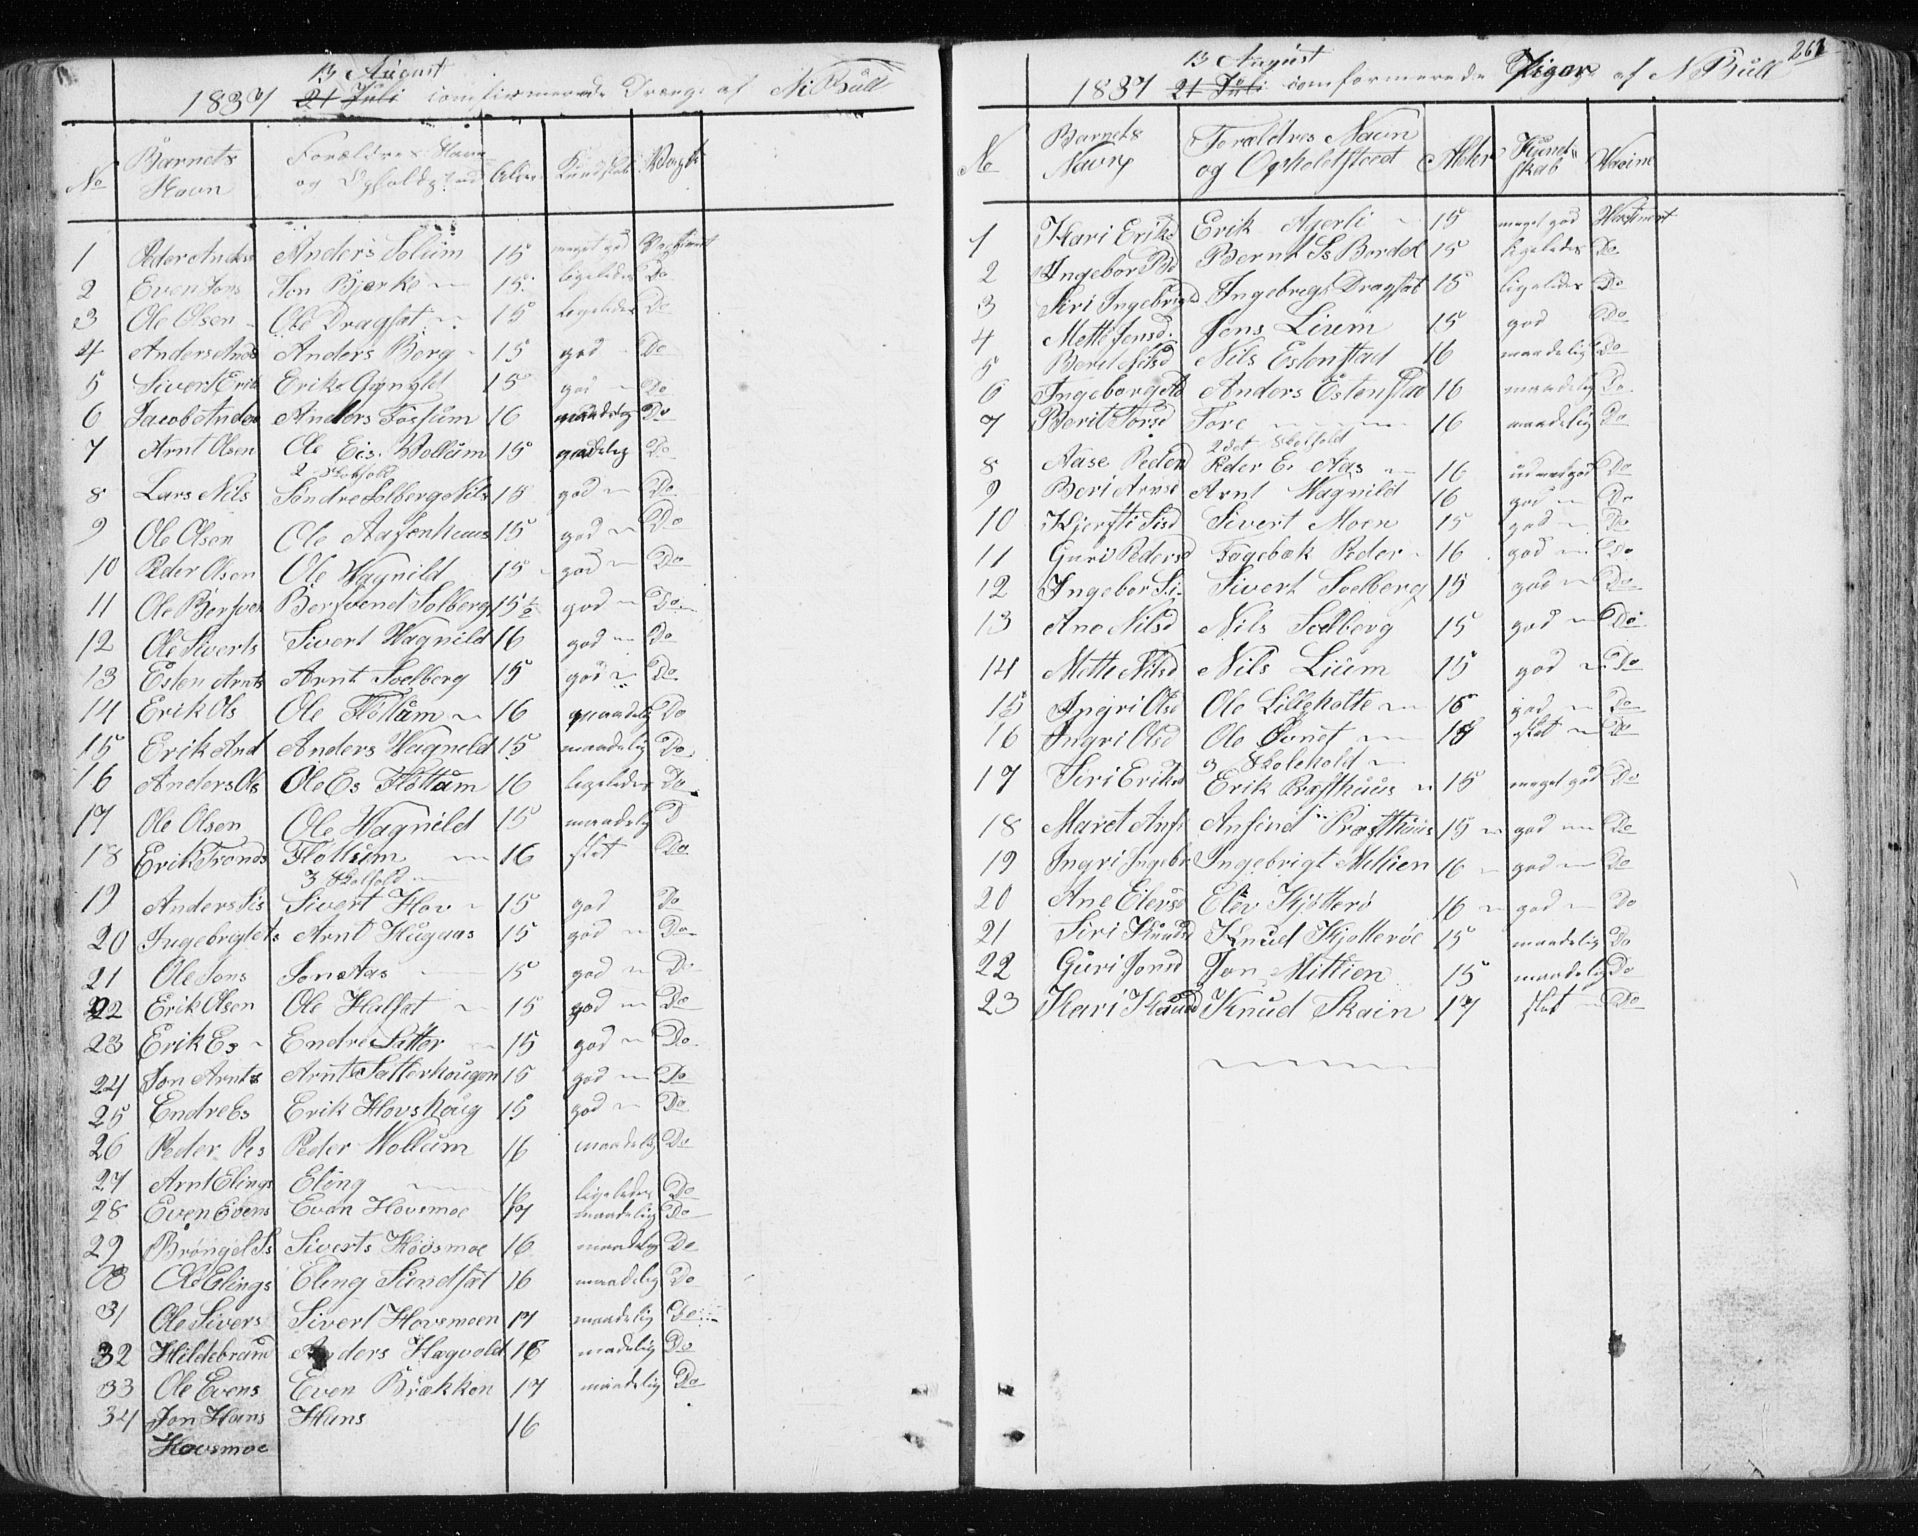 13 August
1837 21 Juli confirmerede Drenge af N Bull
No Barnets Navn Forældres Navn og Opholdsted Alder Kundskab Vaxine
1 Peder Anders Anders Solum 15 meget god Vaxineret
2 Even Jons Jon Bjerke 15 ligeledes Do
3 Ole Olsen Ole Dragset 15 ligeledes Do
4 Anders Anders Anders Berg 15 god Do
5 Sivert Erik Erik 15 god Do
6 Jacob Anders Anders Fossum 16 maadelig Do
7 Arnt Olsen Ole Es. Wollum 15 maadelig Do
2 Skolhold
8 Lars Nils Søndre Solberg Nils 15 god Do
9 Ole Olsen Ole Aasenhuus 15 god Do
10 Peder Olsen Ole Wagnild 15 god Do
11 Ole Bersven Bersvend Solberg 15½ god Do
12 Ole Siverts Sivert Wagnild 16 god Do
13 Esten Arnts Arnt Soelberg 15 god Do
14 Erik Ols Ole Flottum 16 maadelig Do
15 Erik And Anders Wagnild 15 maadelig Do
16 Anders Ols Ole Es Flottum 16 ligeledes Do
17 Ole Olsen Ole Wagnild 15 maadelig D
18 Erik Tronds Flottum 16 slet Do
3 Skolhold
19 Anders Sis Sivert Hov 15 god Do
20 Ingebrigt Ats Arnt Hugaas 15 god Do
21 Ole Jons Jon Aas 15 god Do
22 Erik Olsen Ole Halset 15 god Do
23 Erik Es Endre Sætter 15 god Do
24 Jon Arnts Arnt Sætterhougen 15 god Do
25 Endre Es Erik Hovskoug 15 god Do
26 Peder Pes Peder Wollum 16 maadelig Do
27 Arnt Elings Eling 16 ligeledes Do
28 Even Evens Even Hovsmoe 17 maadelig Do
29 Brøngel Ss Siverts Hovsmoe 16 maadelig Do
Ole Elings Eling Sundset 16 maadelig Do
31 Ole Sivers Sivert Hovsmoen 17 maadelig Do
32 Hildebrand Anders Hagvold 16 madelig Do
33 Ole Evens Even Brækken 17 maadelig Do
34 Jon Hans Hans 16
Hovsmoe
261
13 August
1837 21 Juli comformerede Piger af N Bull
No Barnets Navn Forældres Navn og Opholdsted Alder Kundskab Vaxine
1 Kari Eriks Erik Hjerli 15 meget god Vaxineret
2 Ingebor Bd Bernt Ss Bordal 15 ligeledes Do
3 Siri Ingebrigd Ingebregt Dragset 15 ligeledes Do
4 Mette Jensd. Jens Lium 15 god Do
5 Berit Nilsd Nils Estenstad 16 maadelig Do
6 Ingeborg Ad Anders Estenstad 16 maadelig Do
7 Berit Torsd Tore 16 maadelig Do
2det Skolhold
8 Aase Pederd Peder E. Aas 16 god Do
9 Beri Arnsd Arnt Wagnild 16 god Do
10 Kjersti Sisd Sivert Moen 15 god Do
11 Guri Pedersd Fagebæk Peder 16 god Do
12 Ingebor Si. Sivert Soelberg 15 god Do
13 Ane Nilsd Nils Soelberg 15 god Do
14 Mette Nilsd Nils Lium 15 god Do
15 Ingri Olsd Ole Lilleholte 16 god Do
16 Ingri Olsd Ole Øvnet 18 slet Do
3 Skolehold
17 Siri Eriksd Erik Præsthuus 15 meget god Do
18 Maret Anf. Anfind Præsthuus 15 god Do
19 Ingri Ingebr Ingebrigt Mittien 16 god Do
20 Ane Elevsd Elev Kjøtterø 16 god Do
21 Siri Knudsd Knud Kjøtterøe 15 maadelig Do
22 Guri Jonsd Jon Mittien 15 maadelig Do
23 Kari Knudsd Knud Skain 17 slet Do